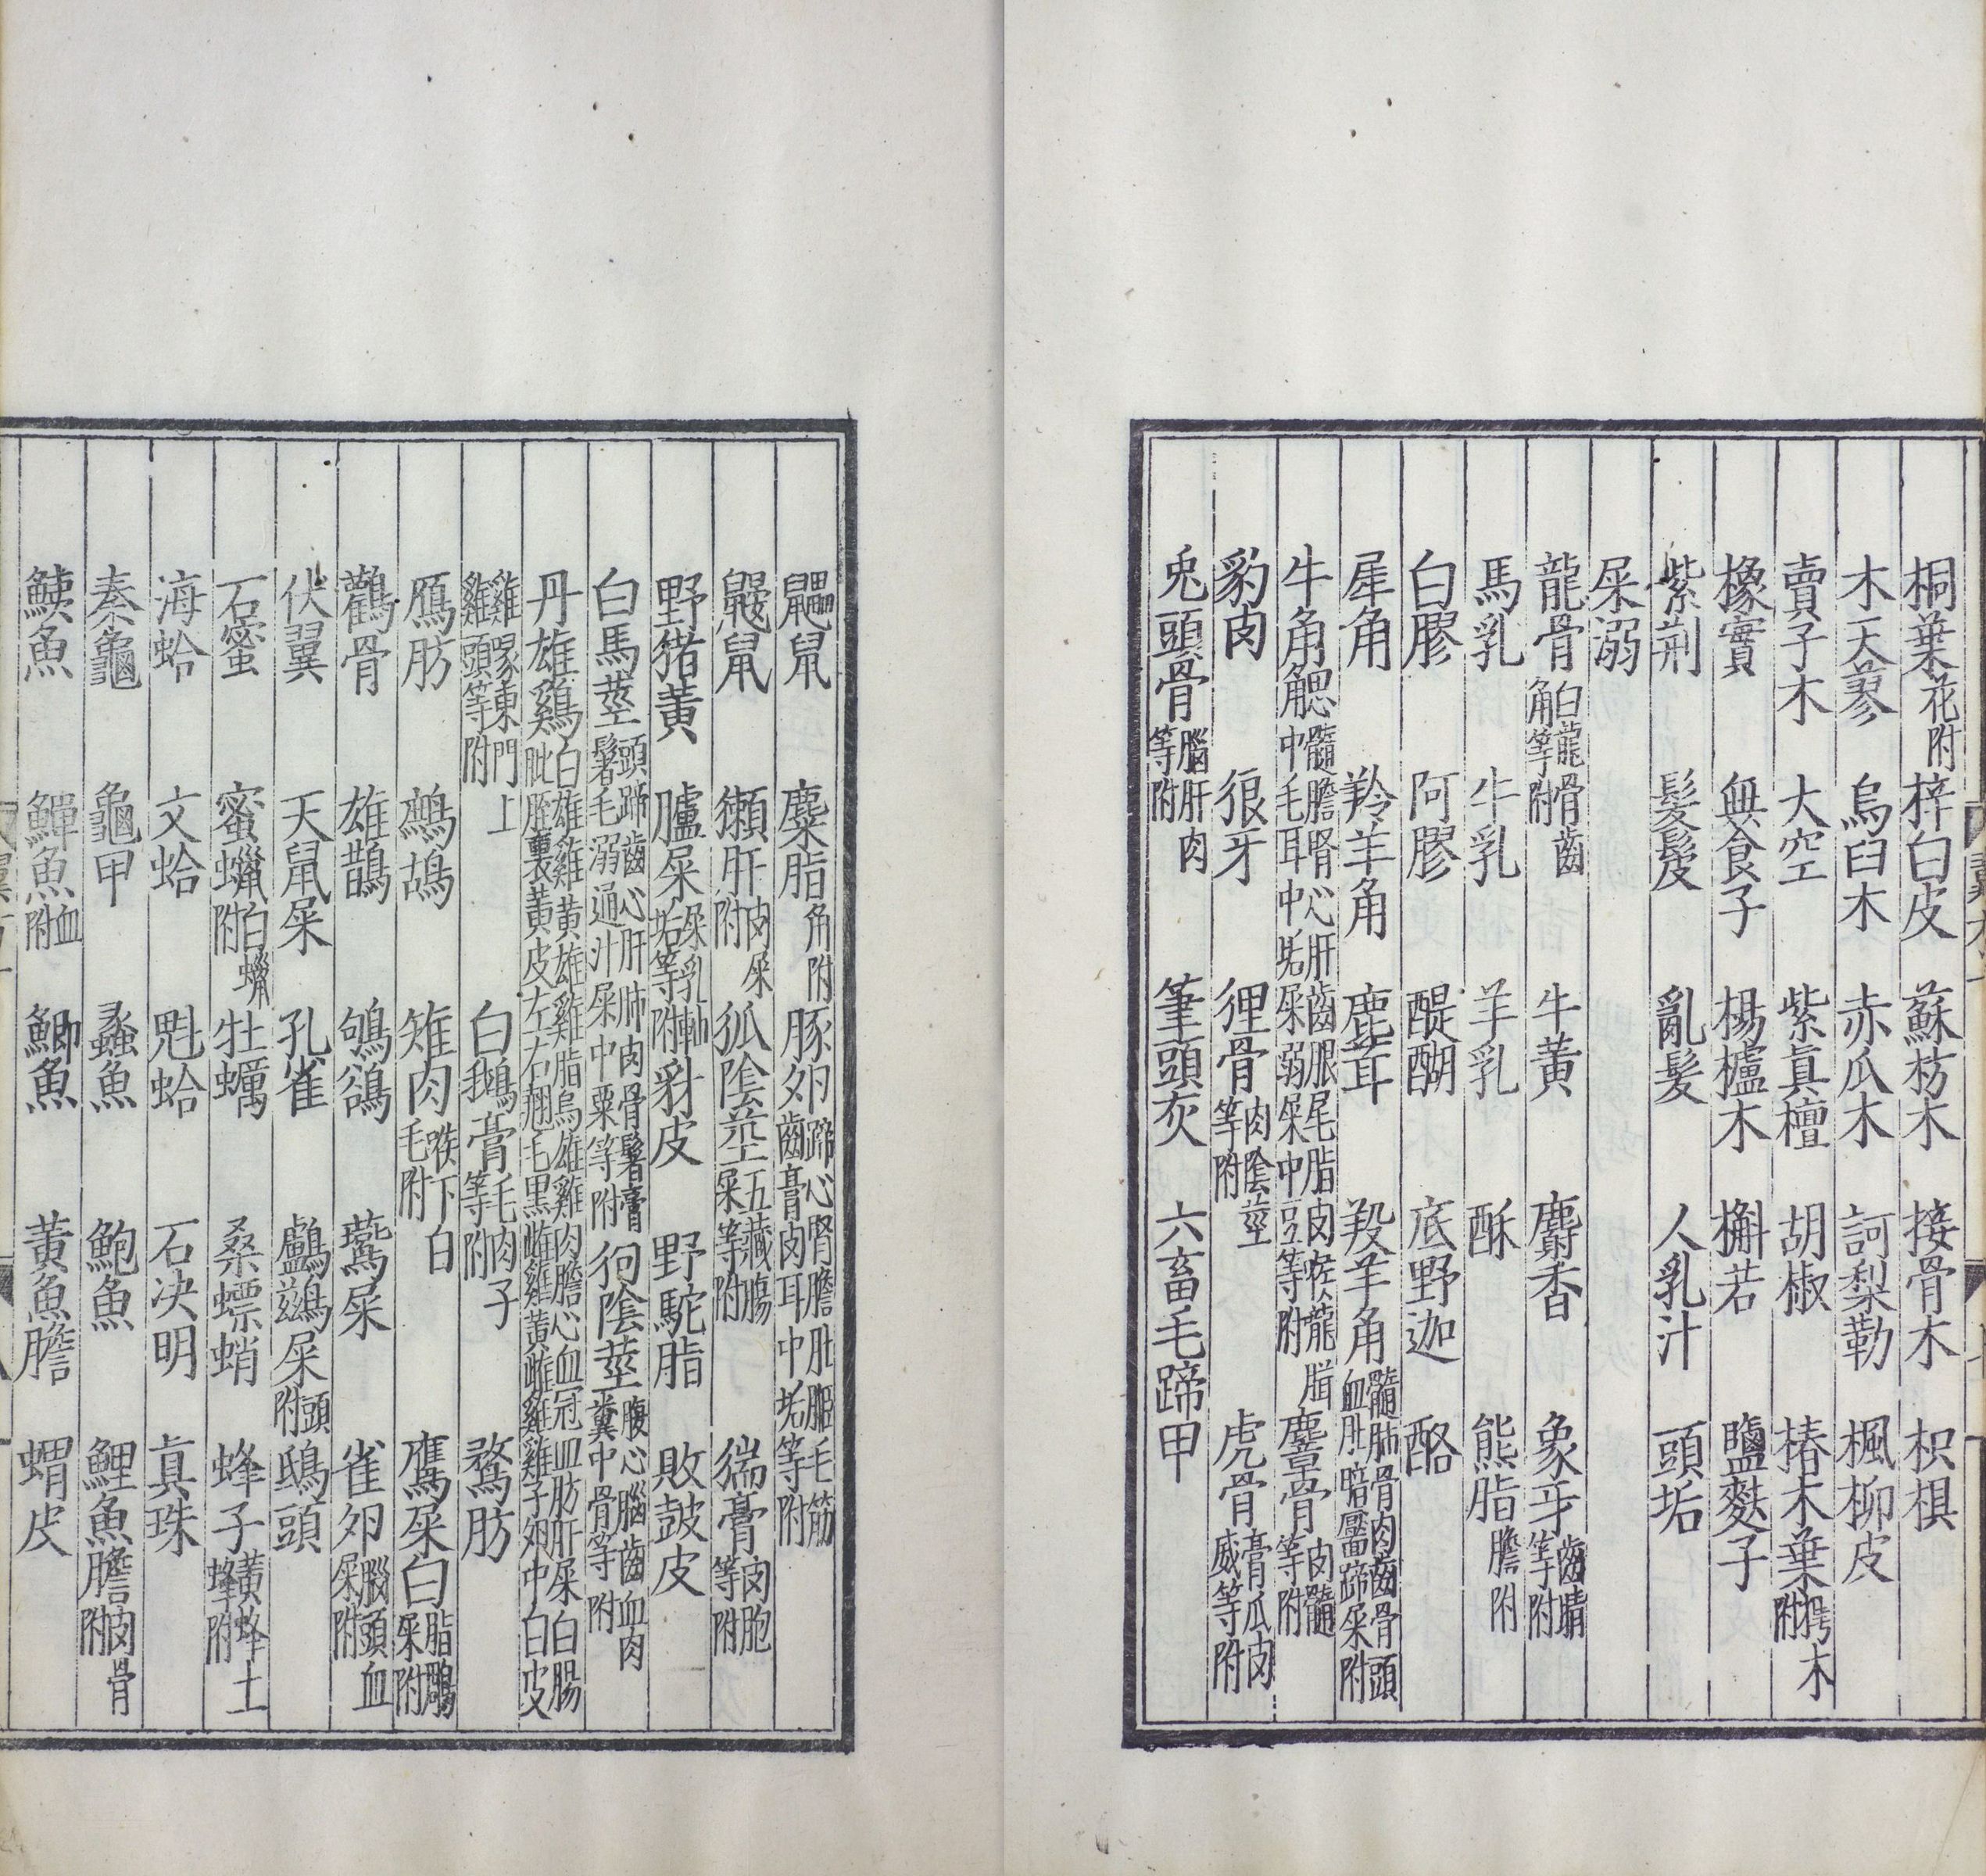 桐葉花附 梓白皮 蘇枋木 接骨木 枳椇
木天蓼 烏臼木 赤瓜木 訶梨勒 楓柳皮
賣子木 大空 紫真檀 胡椒 椿木葉樗木附
橡實 無食子 楊櫨木 槲若 鹽麩子
紫荊 髮髲 亂髮 人乳汁 頭垢
屎溺
龍骨白龍骨齒角等附 牛黃 麝香 象牙齒睛等附
馬乳 牛乳 羊乳 酥 熊脂膽附
白膠 阿膠 醍醐 底野迦 酪
犀角 羚羊角 鹿茸 羖羊角髓肺骨肉齒骨頭血肚蹄屎附
牛角䚡髓膽腎心肝齒尾脂肉中毛耳中垢屎溺屎中豆等附 麞骨肉髓等附
豹肉 狼牙 狸骨肉陰莖等附 虎骨膏爪肉威等附
兎頭骨腦肝肉等附 筆頭灰 六畜毛蹄甲
鼺鼠 麋脂角附 豚卵蹄心腎膽肚毛筋齒膏肉耳中垢等附
鼴鼠 獺肝肉屎附 狐陰莖五藏腸屎等附 猯膏肉胞等附
野猪黃 驢屎尿乳軸垢等附 豺皮 野駝脂 敗鼓皮
白馬莖頭蹄齒心肝肺肉骨鬐膏髻毛溺通汁屎中粟等附 狗陰莖腹心腦齒血肉糞中骨等附
丹雄鷄白雄雞黃雄雞脂烏雄雞肉膽心血冠血肪肝屎白腸肶胵裏黃皮左右翅毛黑雌雞黃雌雞雞子卵中白皮
雞冢東門上雞頭等附 白鵝膏毛肉子等附 鶩肪
鴈肪 鷓鴣 雉肉喉下白毛附 鷹屎白脂鵰屎附
鸛骨 雄鵲 鴝鵒 鷰屎 雀卵腦頭血屎附
伏翼 天鼠屎 孔雀 鸕鷀屎頭附 鴟頭
石蜜 蜜蠟白蠟附 牡蠣 桑螵蛸 蜂子黃蜂土蜂附
海蛤 文蛤 魁蛤 石決明 真珠
秦龜 龜甲 蠡魚 鮑魚 鯉魚膽肉骨附
鮧魚 鱓魚血附 鯽魚 黃魚膽 蝟皮